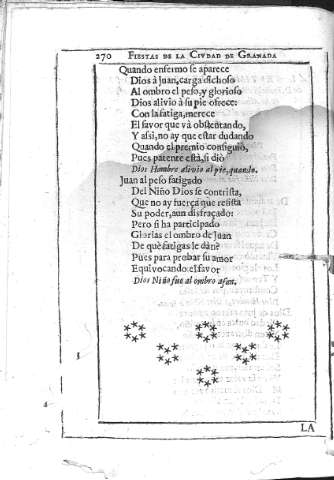 270 FIESTAS DE LA CIVDAD DE GRANADA
Quando enfermo se aparece
Dios à Juan, carga dichoso
Al ombro el peso, y glorioso
Dios alivio à su pie ofrece:
Con la fatiga, merece
El favor que và obstentando,
Y assi, no ay que estar dudando
Quando el premio consiguiò,
Pues patente està, si diò
Dios Hombre alivio al pie, quando.
Juan al peso fatigado
Del Niño Dios se contrista,
Que no ay fuerça que resista
Su poder, aun disfraçado:
Pero si ha participado
Glorias el ombro de Juan
De què fatigas le dàn?
Pues para probar su amor
Equivocando el favor
Dios Niño fue al ombro afan.
LA